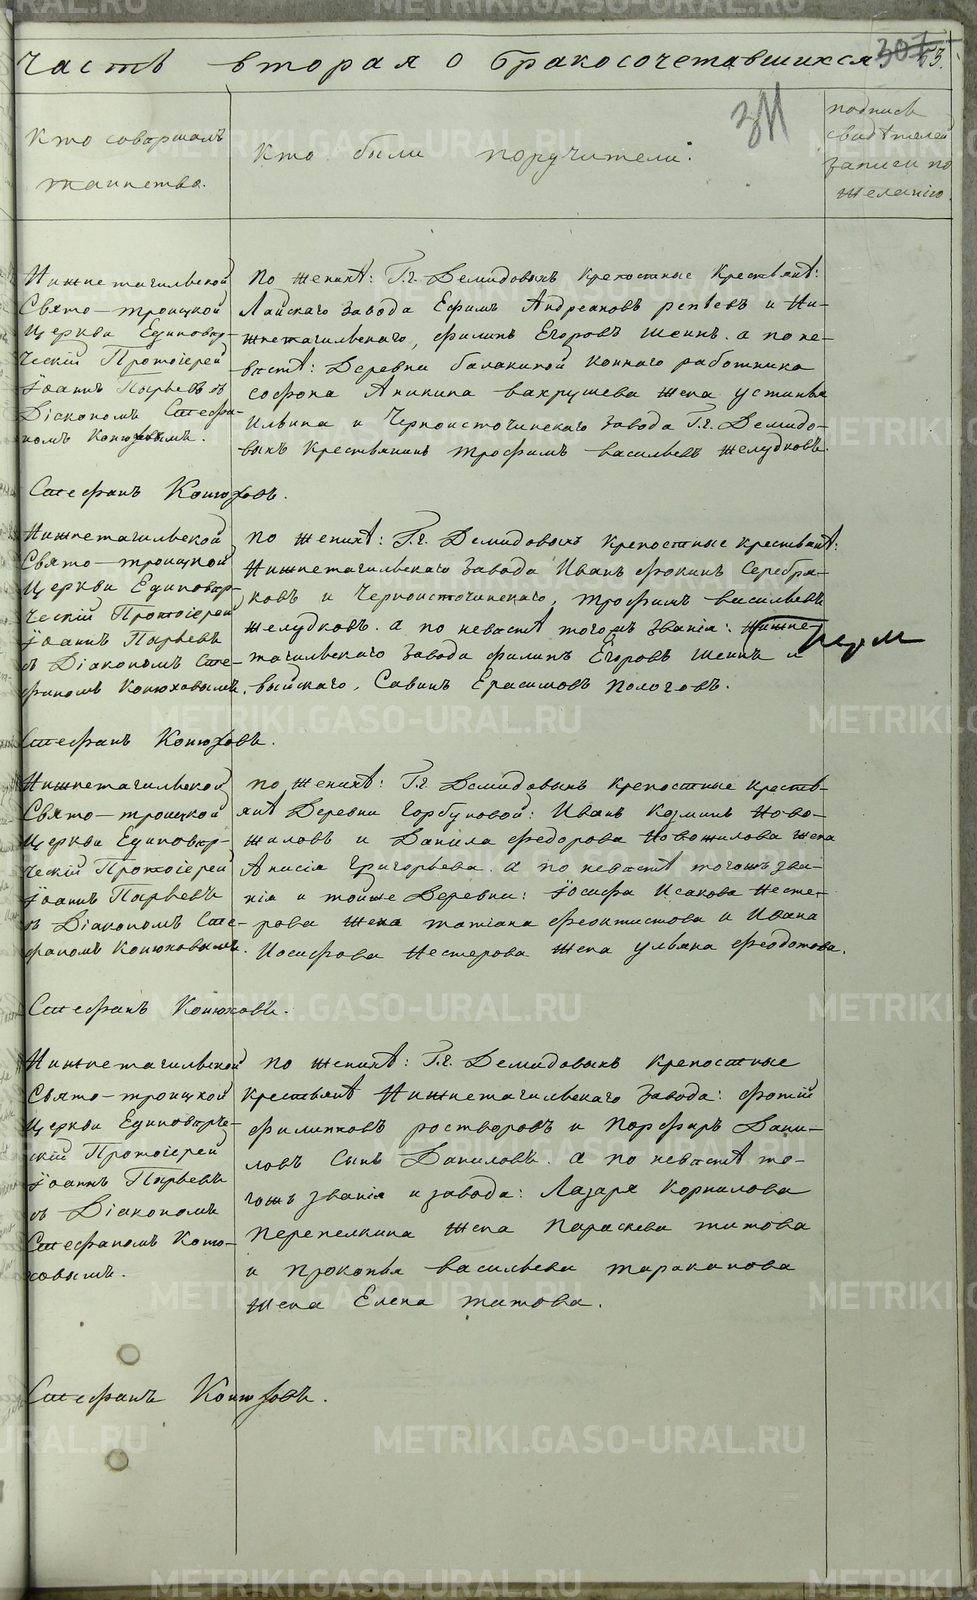 Часть вторая о бракосочетавшихся
307 53.
311
Кто совершалъ
таинство.
Кто были поручители:
подпись
свидѣтелей
записи по
желанію.
Нижнетагильской
Свято-троицкой
Церкви Единовѣр-
ческій Протоіерей
Іоаннъ Пырьевъ съ
Діакономъ Стефа-
номъ Конюховымъ.
По женихѣ: Г.г. Демидовыхъ крепостные крестьянѣ:
Лайскаго завода Ефимъ Андреановъ репьевъ и Ни-
жнетагильскаго, филипъ Егоровъ Шеинъ. а по не-
вѣстѣ: Деревни балакиной коннаго работника
софрона Аникина вахрушева жена устинья
Ильина и Черноисточинскаго завода Г.г. Демидо-
выхъ Крестьянинъ трофимъ васильевъ желудковъ.
Стефанъ Конюховъ.
Нижнетагильской
Свято-троицкой
Церкви Единовѣр-
ческій Протоіерей
Іоаннъ Пырьевъ
съ Діакономъ Сте-
фаномъ Конюховымъ.
по женихѣ: Г.г. Демидовыхъ крепостные крестьянѣ:
Нижнетагильскаго завода Иванъ фокинъ Серебря-
ковъ и Черноисточинскаго, трофимъ васильевъ
желудковъ. а по невѣстѣ тогожъ званія: Нижне-
тагильскаго завода филипъ Егоровъ Шеинъ и
выйскаго, Савинъ Ерасимовъ пологовъ.
Стефанъ Конюховъ.
Нижнетагильской
Свято-троицкой
Церкви Единовѣр-
ческій Протоіерей
Іоаннъ Пырьевъ
съ Діакономъ Сте-
фаномъ Конюховымъ.
по женихѣ: Г.г. Демидовыхъ крепостные кресть-
янѣ Деревни Горбуновой: Иванъ Козминъ Ново-
жиловъ и Данила федорова Новожилова жена
Анисія григорьева. а по невѣстѣ тогожъ зва-
нія и тойже Деревни: Іосифа Исакова Несте-
рова жена татіана феоктистова и Ивана
Иосифова Нестерова жена ульяна феодотова.
Стефанъ Конюховъ.
Нижнетагильской
Свято-троицкой
Церкви Единовѣрче-
скій Протоіерей
Іоаннъ Пырьевъ
съ Діакономъ
Стефаномъ Коню-
ховымъ.
по женихѣ: Г.г. Демидовыхъ крепостные
крестьянѣ Нижнетагильскаго завода: фотій
филипповъ растворовъ и Порфиръ Дани-
ловъ сынъ Даниловъ. а по невѣстѣ то-
гожъ званія и завода: Лазаря Корнилова
Перепелкина жена Параскева титова
и прокопья васильева тараканова
жена Елена титова.
Стефанъ Конюховъ.
METRIKI.GASO-URAL.RU